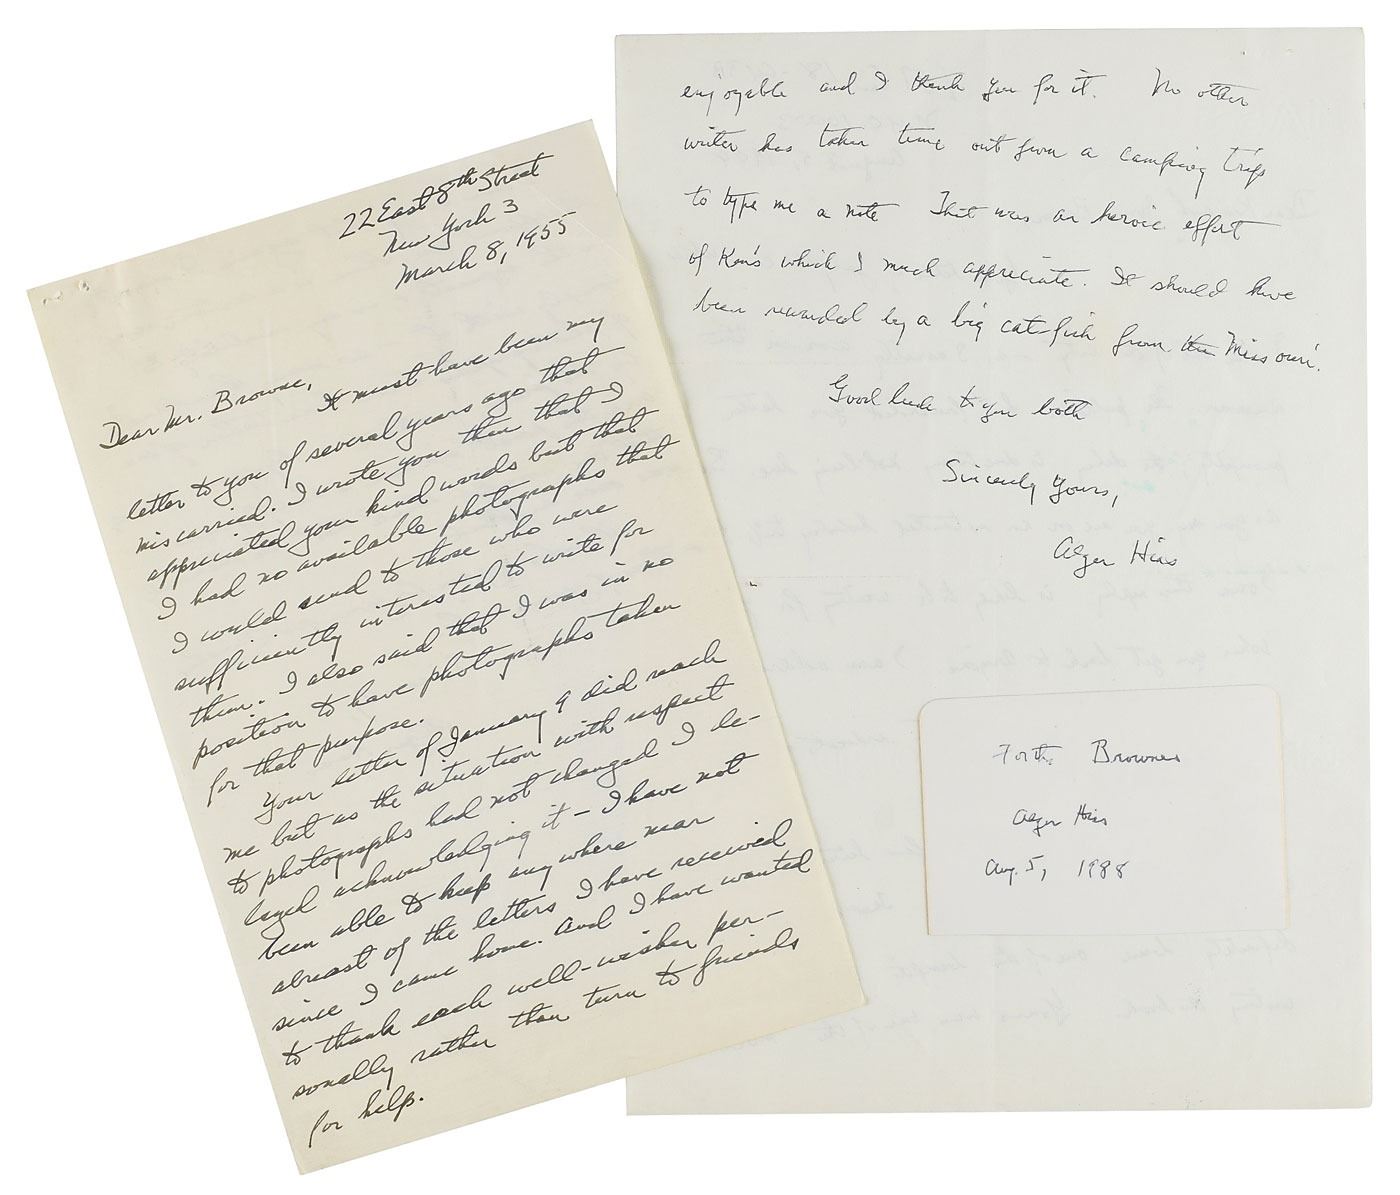 22 East 8th Street
New York 3
March 8, 1955
Dear Mr. Browne,
It must have been my
letter to you of several years ago that
miscarried. I wrote you then that I
appreciated your kind words but that
I had no available photographs that
I would send to those who were
sufficiently interested to write for
them. I also said that I was in no
position to have photographs taken
for that purpose.
Your letter of January 9 did reach
me but as the situation with respect
to photographs had not changed I de-
layed acknowledging it – I have not
been able to keep any where near
abreast of the letters I have received
since I came home. And I have wanted
to thank each well-wisher per-
sonally rather than turn to friends
for help.
enjoyable and I thank you for it. No other
writer has taken time out from a camping trip
to type me a note That was an heroic effort
of Ken's which I much appreciate. It should have
been rewarded by a big cat-fish from the Missouri.
Good luck to you both
Sincerely Yours,
Alger Hiss
For the Brownes
Alger Hiss
Aug. 5, 1988